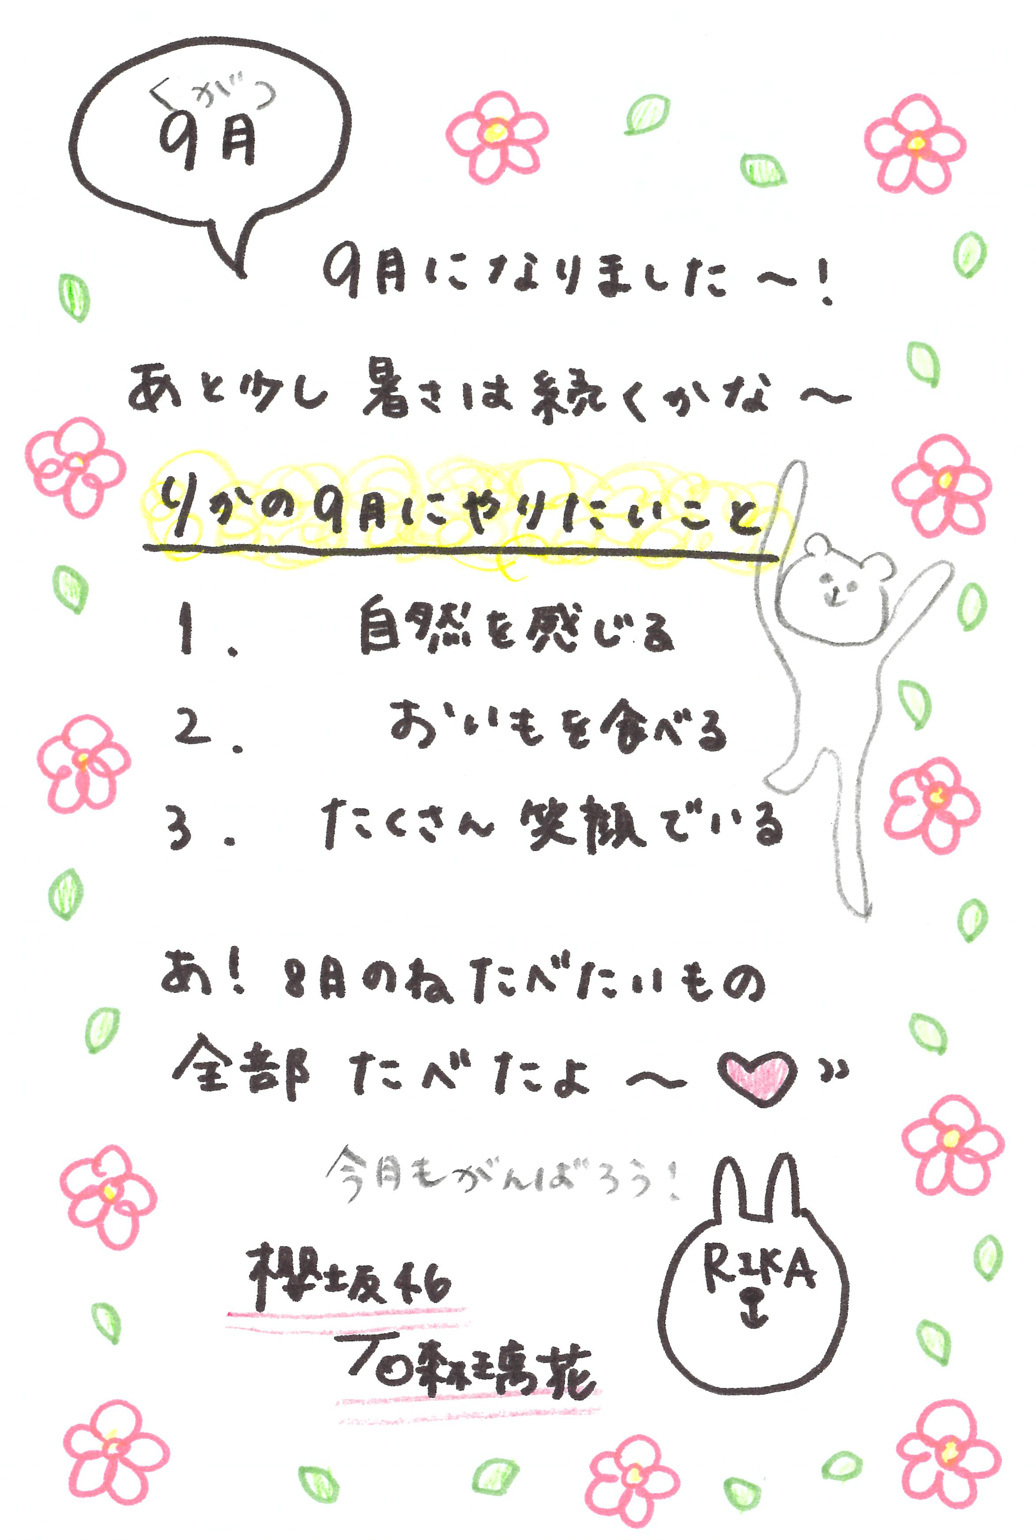 くがつ
9月
9月になりました〜!
あと少し 暑さは続くかな〜
りかの9月にやりたいこと
1. 自然を感じる
2. おいもを食べる
3. たくさん笑顔でいる
あ! 8月のね たべたいもの
全部 たべたよ〜
今月もがんばろう!
RIKA
櫻坂46
石森璃花